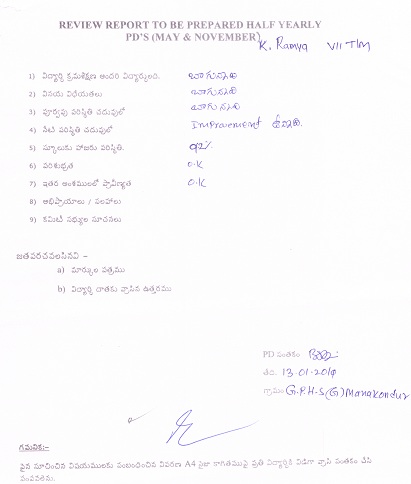 REVIEW REPORT TO BE PREPARED HALF YEARLY
PD'S (MAY & NOVEMBER)
K. Ramya VII T/M
1) విద్యార్థి క్రమశిక్షణ అందరి విద్యార్థులది. బాగున్నది
2) వినయ విధేయతలు బాగున్నది
3) పూర్వపు పరిస్థితి చదువులో బాగున్నది
4) నేటి పరిస్థితి చదువులో Improvement ఉన్నది.
5) స్కూలుకు హాజరు పరిస్థితి. 92%
6) పరిశుభ్రత O.K
7) ఇతర అంశములలో ప్రావీణ్యత O.K
8) అభిప్రాయాలు / సలహాలు
9) కమిటీ సభ్యుల సూచనలు
జతపరచవలసినవి –
a) మార్కుల పత్రము
b) విద్యార్థి దాతకు వ్రాసిన ఉత్తరము
PD సంతకం
తేది. 13-01-2014
గ్రామం G.P.H.S(G) Manakondur
గమనిక:–
పైన సూచించిన విషయములకు సంబంధించిన వివరణ A4 సైజు కాగితముపై ప్రతి విద్యార్థికి విడిగా వ్రాసి సంతకం చేసి
పంపవలెను.